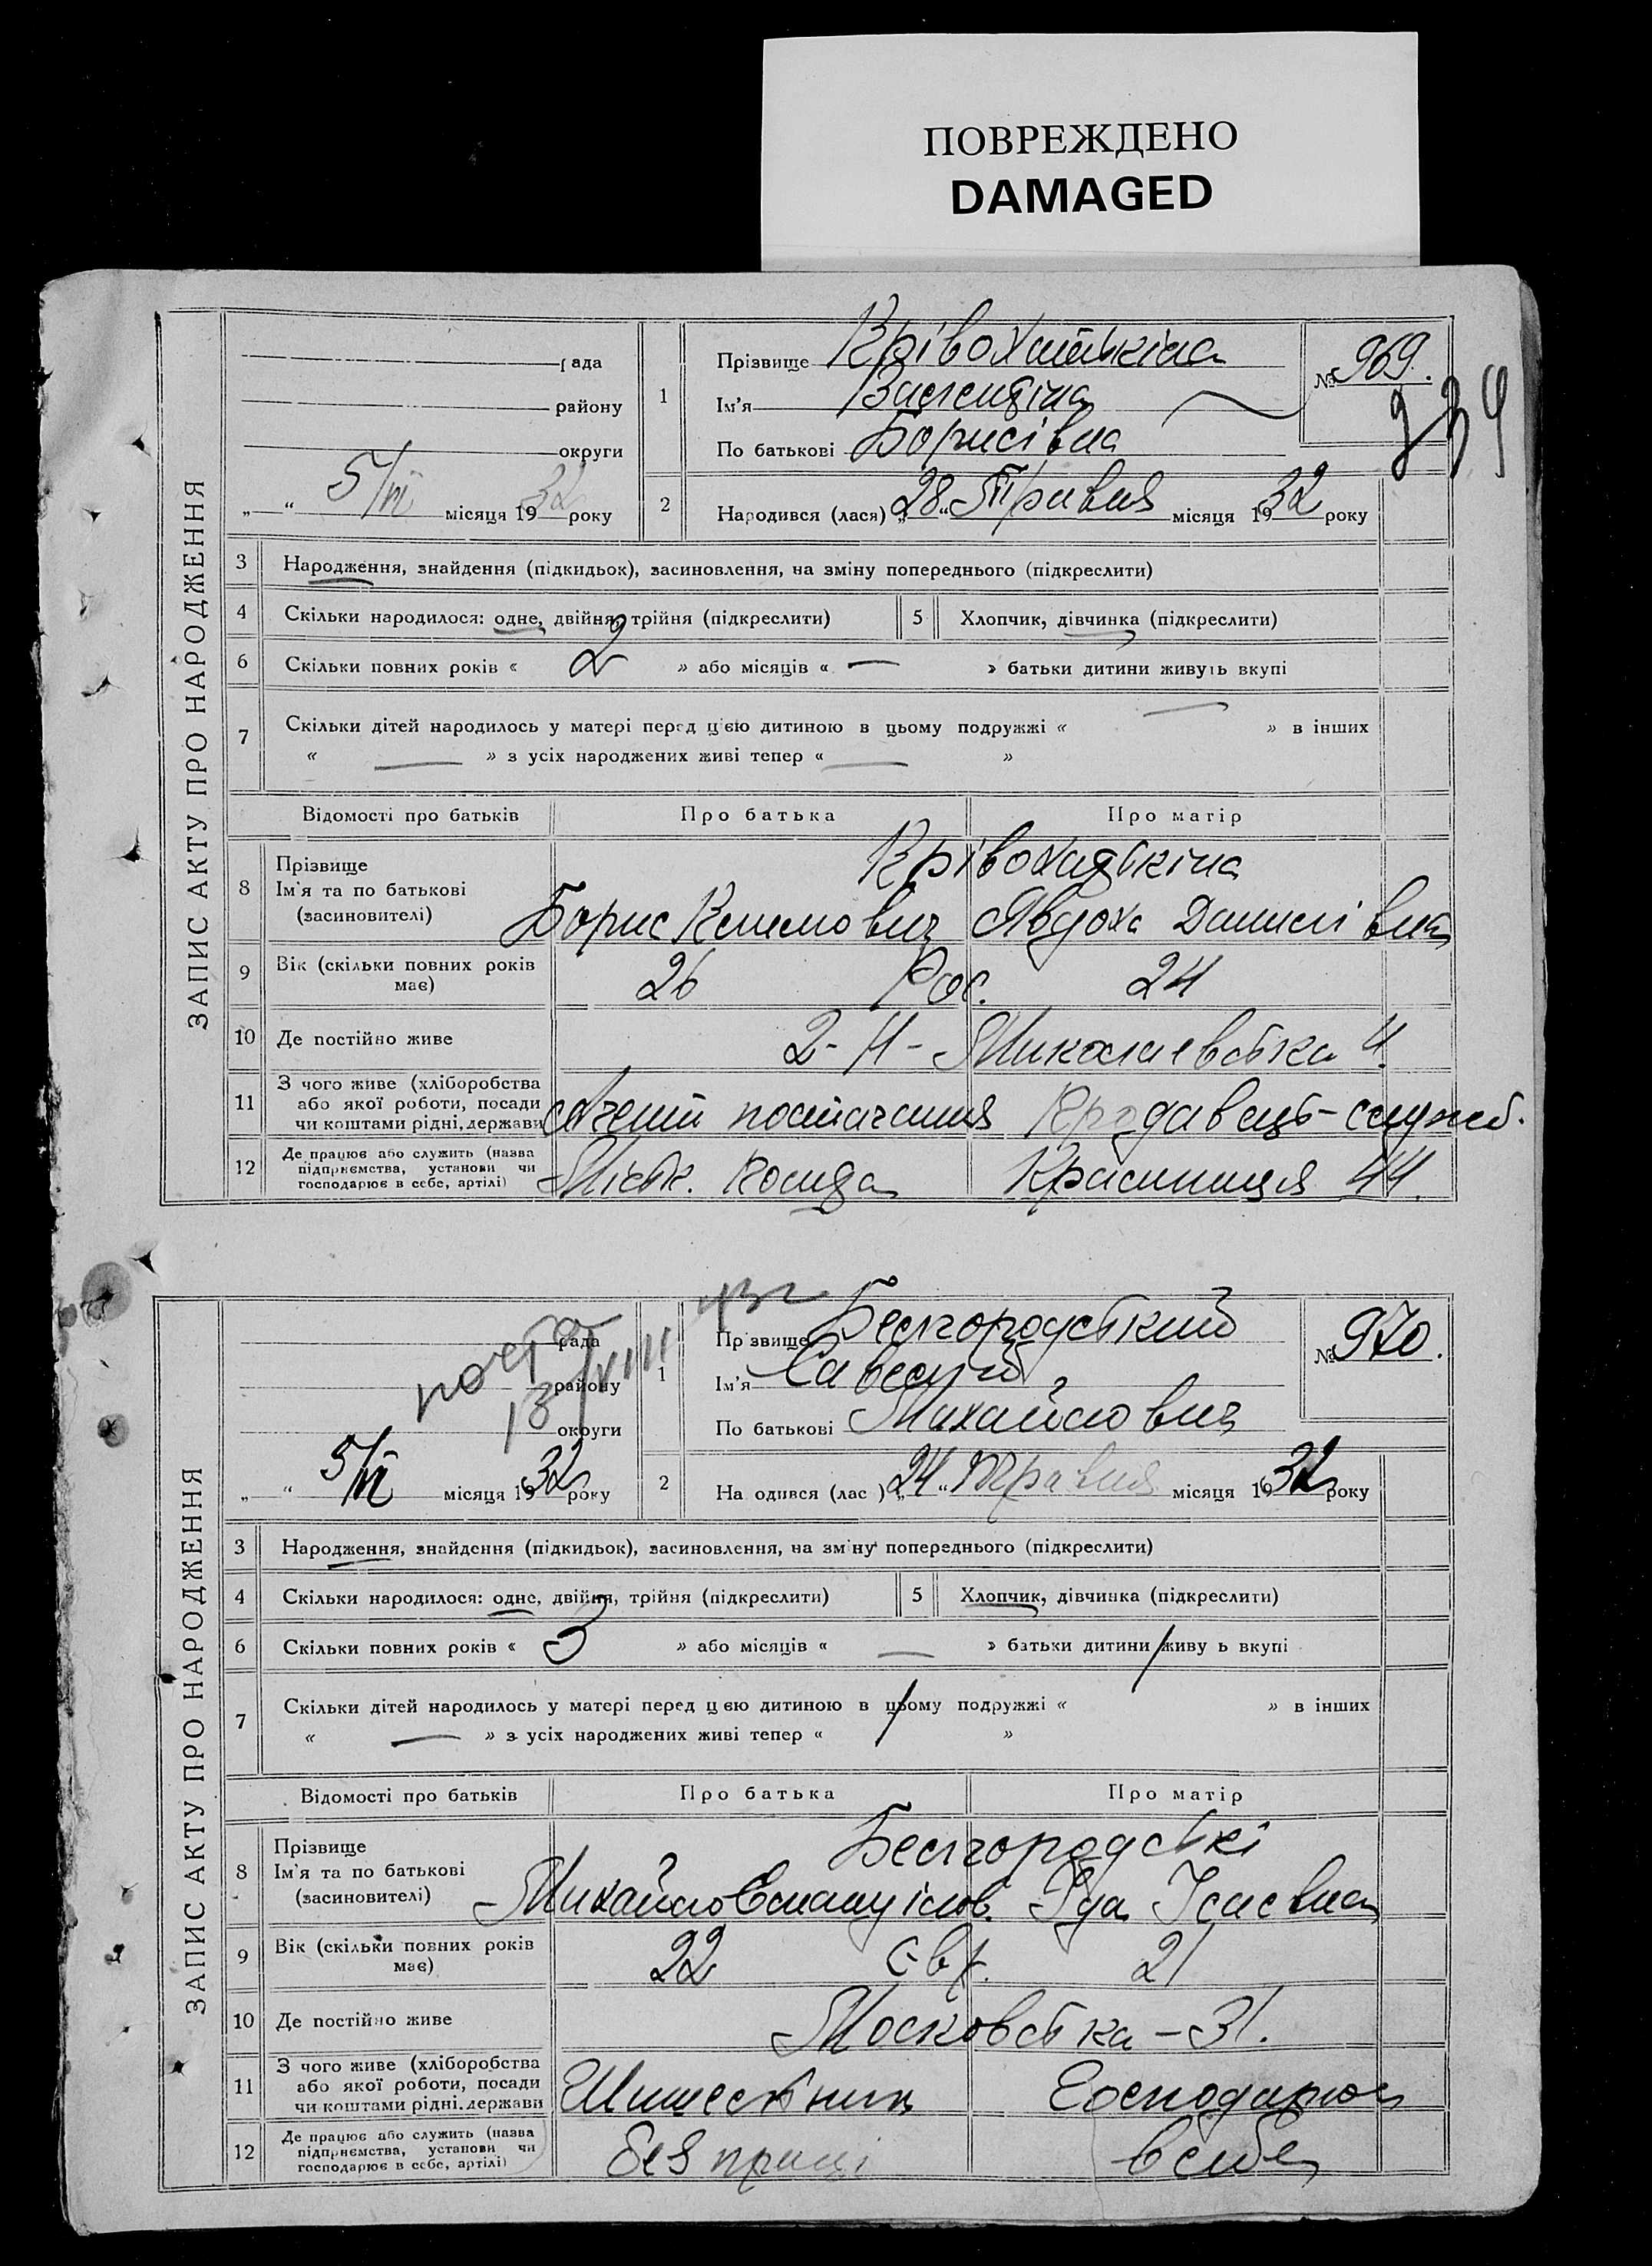 ПОВРЕЖДЕНО
DAMAGED
ЗАПИС АКТУ ПРО НАРОДЖЕННЯ
рада
району
округи
„ “ 5/VI місяця 1932 року
1 Прізвище Крівохатькіна
Ім'я Валентіна
По батькові Борисівна
№ 969.
234
2 Народився (лася) „28“ Травня місяця 1932 року
3 Народження, знайдення (підкидьок), засиновлення, на зміну попереднього (підкреслити)
4 Скільки народилося: одне, двійня, трійня (підкреслити) 5 Хлопчик, дівчинка (підкреслити)
6 Скільки повних років « 2 » або місяців « — » батьки дитини живуть вкупі
7 Скільки дітей народилось у матері перед цією дитиною в цьому подружжі « — » в інших
« — » з усіх народжених живі тепер « — »
Відомості про батьків Про батька Про матір
8 Прізвище Ім'я та по батькові (засиновителі)
Крівохатькіна
Борис Климович Явдоха Данилівна
9 Вік (скільки повних років має) 26 Рос. 24
10 Де постійно живе 2-Н-Миколаевська 4
11 З чого живе (хліборобства або якої роботи, посади чи коштами рідні, держави
Агент постачання Продавець-служб.
12 Де працює або служить (назва підприємства, установи чи господарює в себе, артілі)
Міськ. Крамниця 44.
ЗАПИС АКТУ ПРО НАРОДЖЕННЯ
рада
району
округи
„ “ 5/VI місяця 1932 року
1 Пр звище Белгородський
Ім'я Савелий
По батькові Михайлович
№ 970.
2 На одився (лас ) „24“ Травня місяця 1932 року
3 Народження, знайдення (підкидьок), засиновлення, на зм ну попереднього (підкреслити)
4 Скільки народилося: одне, двійня, трійня (підкреслити) 5 Хлопчик, дівчинка (підкреслити)
6 Скільки повних років « 3 » або місяців « — » батьки дитини живу ь вкупі
7 Скільки дітей народилось у матері перед ц єю дитиною в цьому подружжі « » в інших
« — » з усіх народжених живі тепер « »
Відомості про батьків Про батька Про матір
8 Прізвище Ім'я та по батькові (засиновителі)
Белгородські
Михайло Емануілов. Іда Ісаєвна
9 Вік (скільки повних років має) 22 Євр. 21
10 Де постійно живе Московська – 31.
11 З чого живе (хліборобства або якої роботи, посади чи коштами рідні, держави
Господарює
12 Де працює або служить (назва підприємства, установи чи господарює в себе, артілі)
без праці в себе